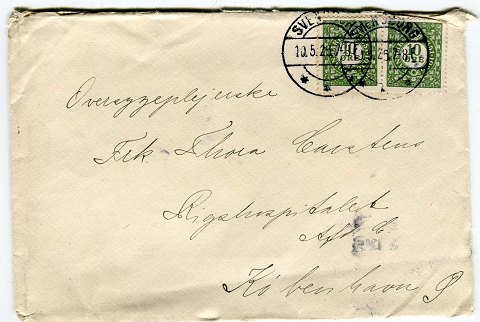 SVENDBORG SVENDBORG
10.5.25.7
10 ØRE 10 ØRE
Oversygeplejerske
Frk. Thora Carstens
Rigshospitalet
Afd. C.
København Ø